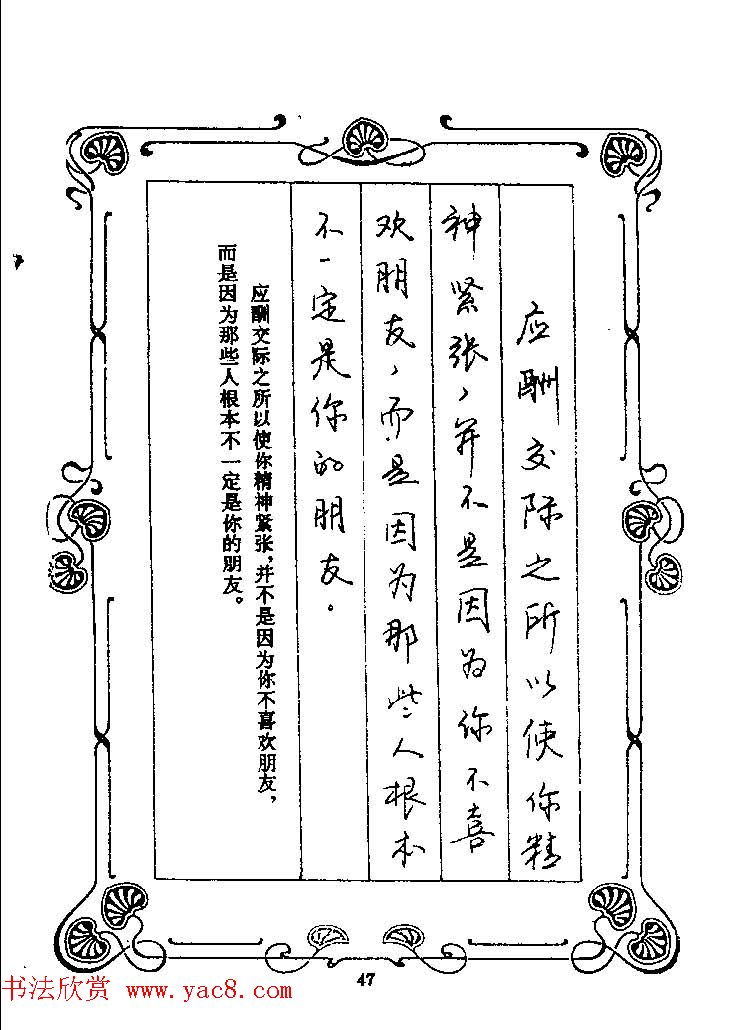 应酬交际之所以使你精
神紧张，并不是因为你不喜
欢朋友，而是因为那些人根本
不一定是你的朋友。
应酬交际之所以使你精神紧张，并不是因为你不喜欢朋友，
而是因为那些人根本不一定是你的朋友。
47
书法欣赏 www.yac8.com